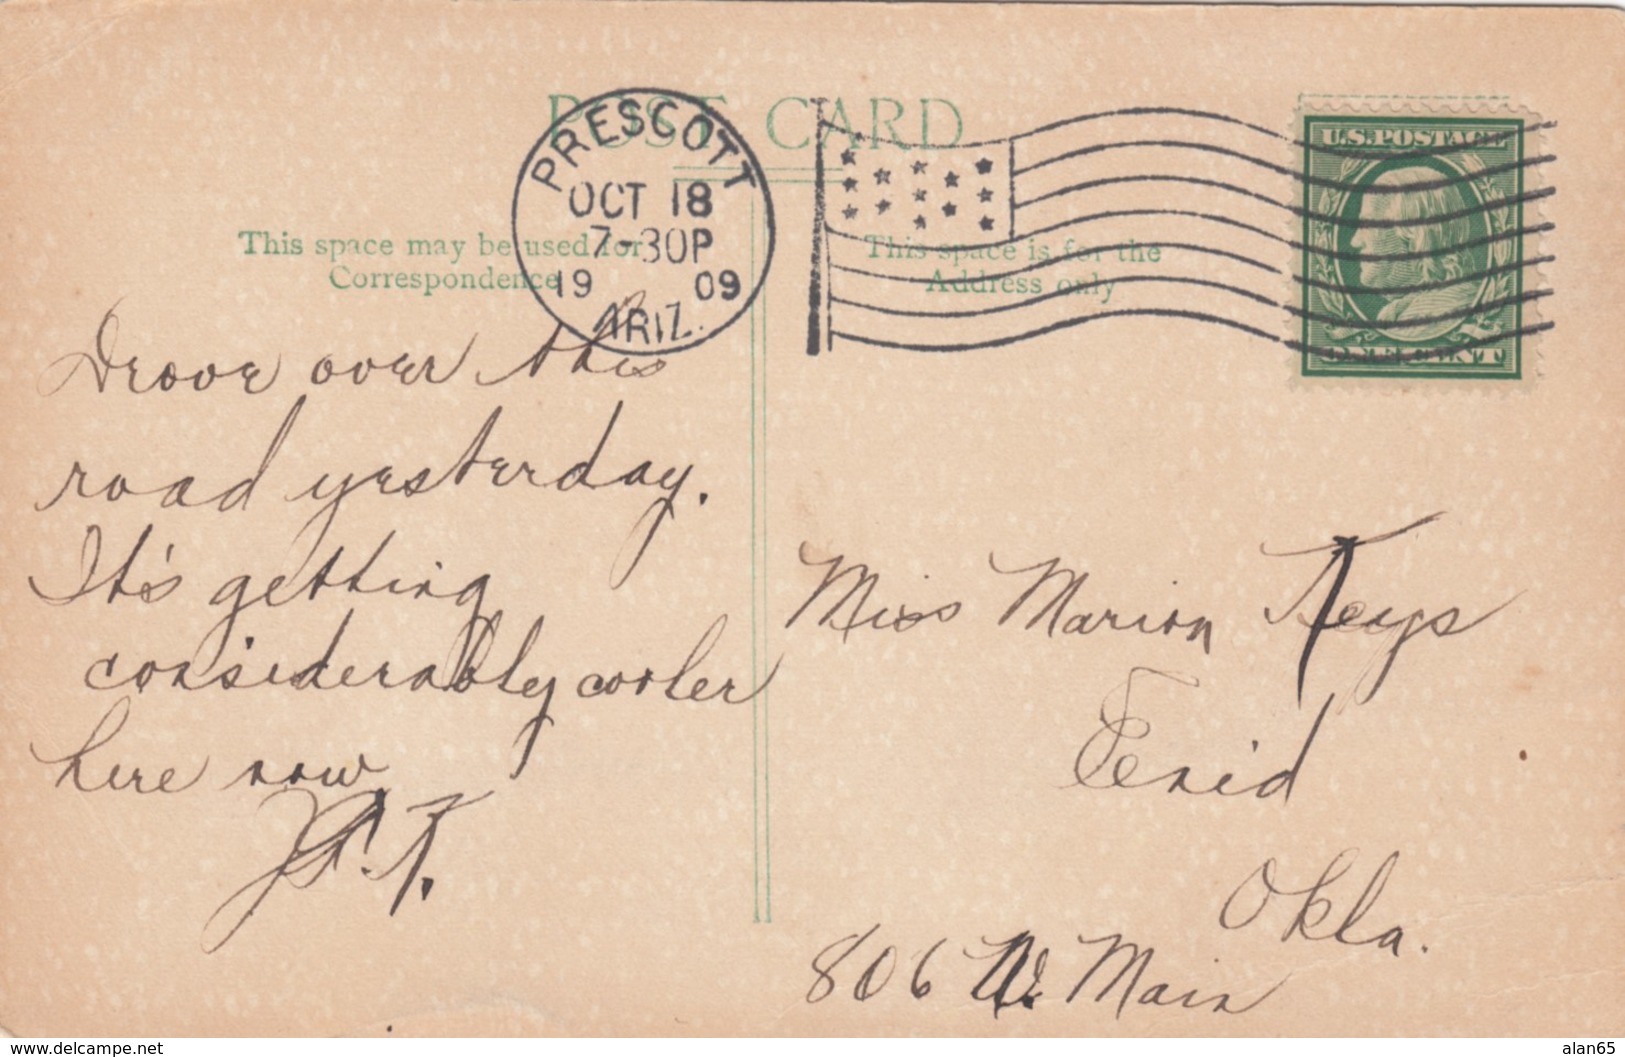 POST CARD
PRESCOTT
OCT 18
7-30P
19 09
ARIZ.
U.S. POSTAGE
This space may be used for
Correspondence
This space is for the
Address only
Drove over this
road yesterday.
It's getting
considerably cooler
here now
Miss Marion Keys
Enid
Okla.
806 W. Main
www.delcampe.net
alan65